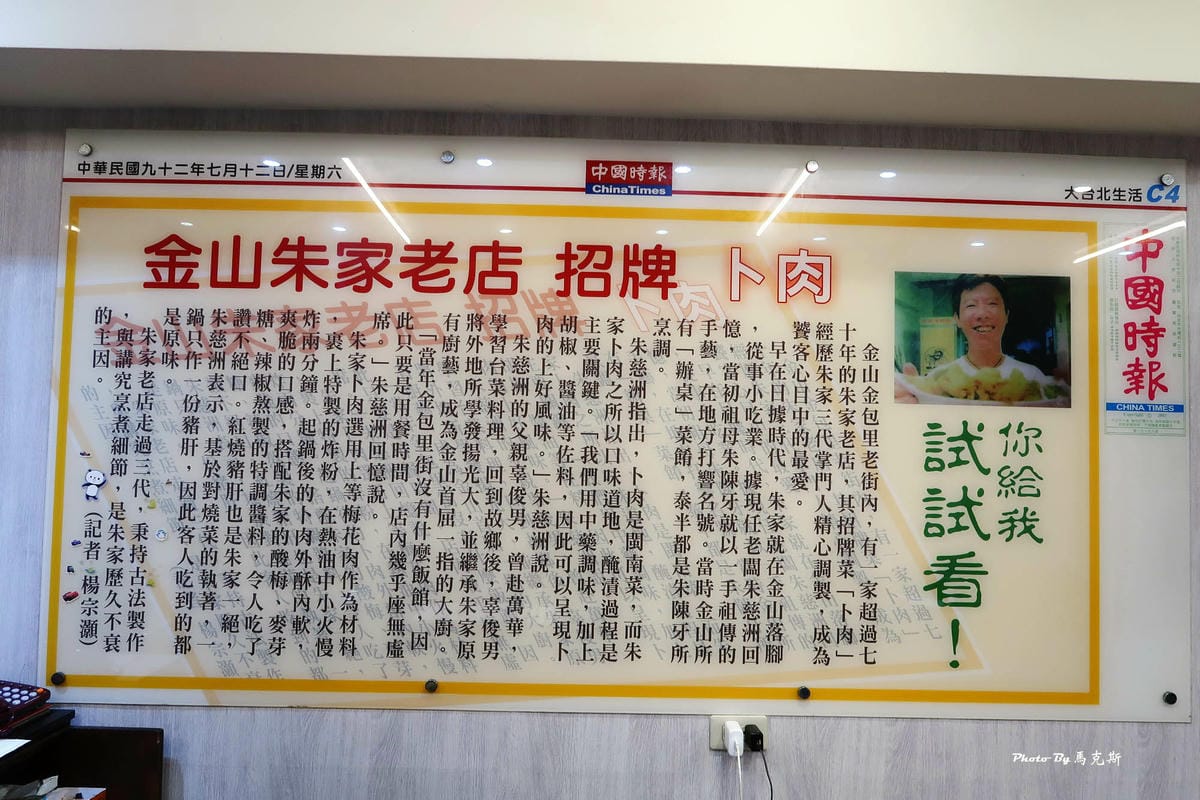 中華民國九十二年七月十二日/星期六
中國時報
ChinaTimes
大台北生活 C4
金山朱家老店 招牌 卜肉
中國時報
CHINA TIMES
你給我
試試看！
金山金包里老街內，有一家超過七
十年的朱家老店，其招牌菜「卜肉」
經歷朱家三代掌門人精心調製，成為
饕客心目中的最愛。
早在日據時代，朱家就在金山落腳
，從事小吃業。據現任老闆朱慈洲回
憶，當初祖母朱陳牙就以一手祖傳的
手藝，在地方打響名號。當時金山所
有「辦桌」菜餚，泰半都是朱陳牙所
烹調。
朱慈洲指出，卜肉是閩南菜，而朱
家卜肉之所以口味道地，醃漬過程是
主要關鍵。「我們用中藥調味，加上
胡椒、醬油等佐料，因此可以呈現卜
肉的上好風味。」朱慈洲說。
朱慈洲的父親辜俊男，曾赴萬華，
學習台菜料理，回到故鄉後，辜俊男
將外地所學發揚光大，並繼承朱家原
有廚藝，成為金山首屈一指的大廚。
「當年金包里街沒有什麼飯館，因
此只要是用餐時間，店內幾乎座無虛
席。」朱慈洲回憶說。
朱家卜肉選用上等梅花肉作為材料
，裹上特製的炸粉，在熱油中小火慢
炸兩分鐘。起鍋後的卜肉外酥內軟，
爽脆的口感，搭配朱家的酸梅、麥芽
糖、辣椒熬製的特調醬料，令人吃了
讚不絕口。紅燒豬肝也是朱家一絕，
朱慈洲表示，基於對燒菜的執著，一
鍋只作一份豬肝，因此客人吃到的都
是原味。
朱家老店走過三代，秉持古法製作
，與講究烹煮細節，是朱家歷久不衰
的主因。
（記者 楊宗灝）
Photo By 馬克斯